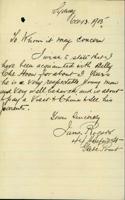 Sydney
Oct 13 1915
To Whom it may concern
I wish to state that I
have been acquainted with Billy
Choe Hoon for about 15 years
he is a very respectable young man
and very well behaved and is about
to pay a visit to China with his
parents.
Yours Sincerely
James Rogers